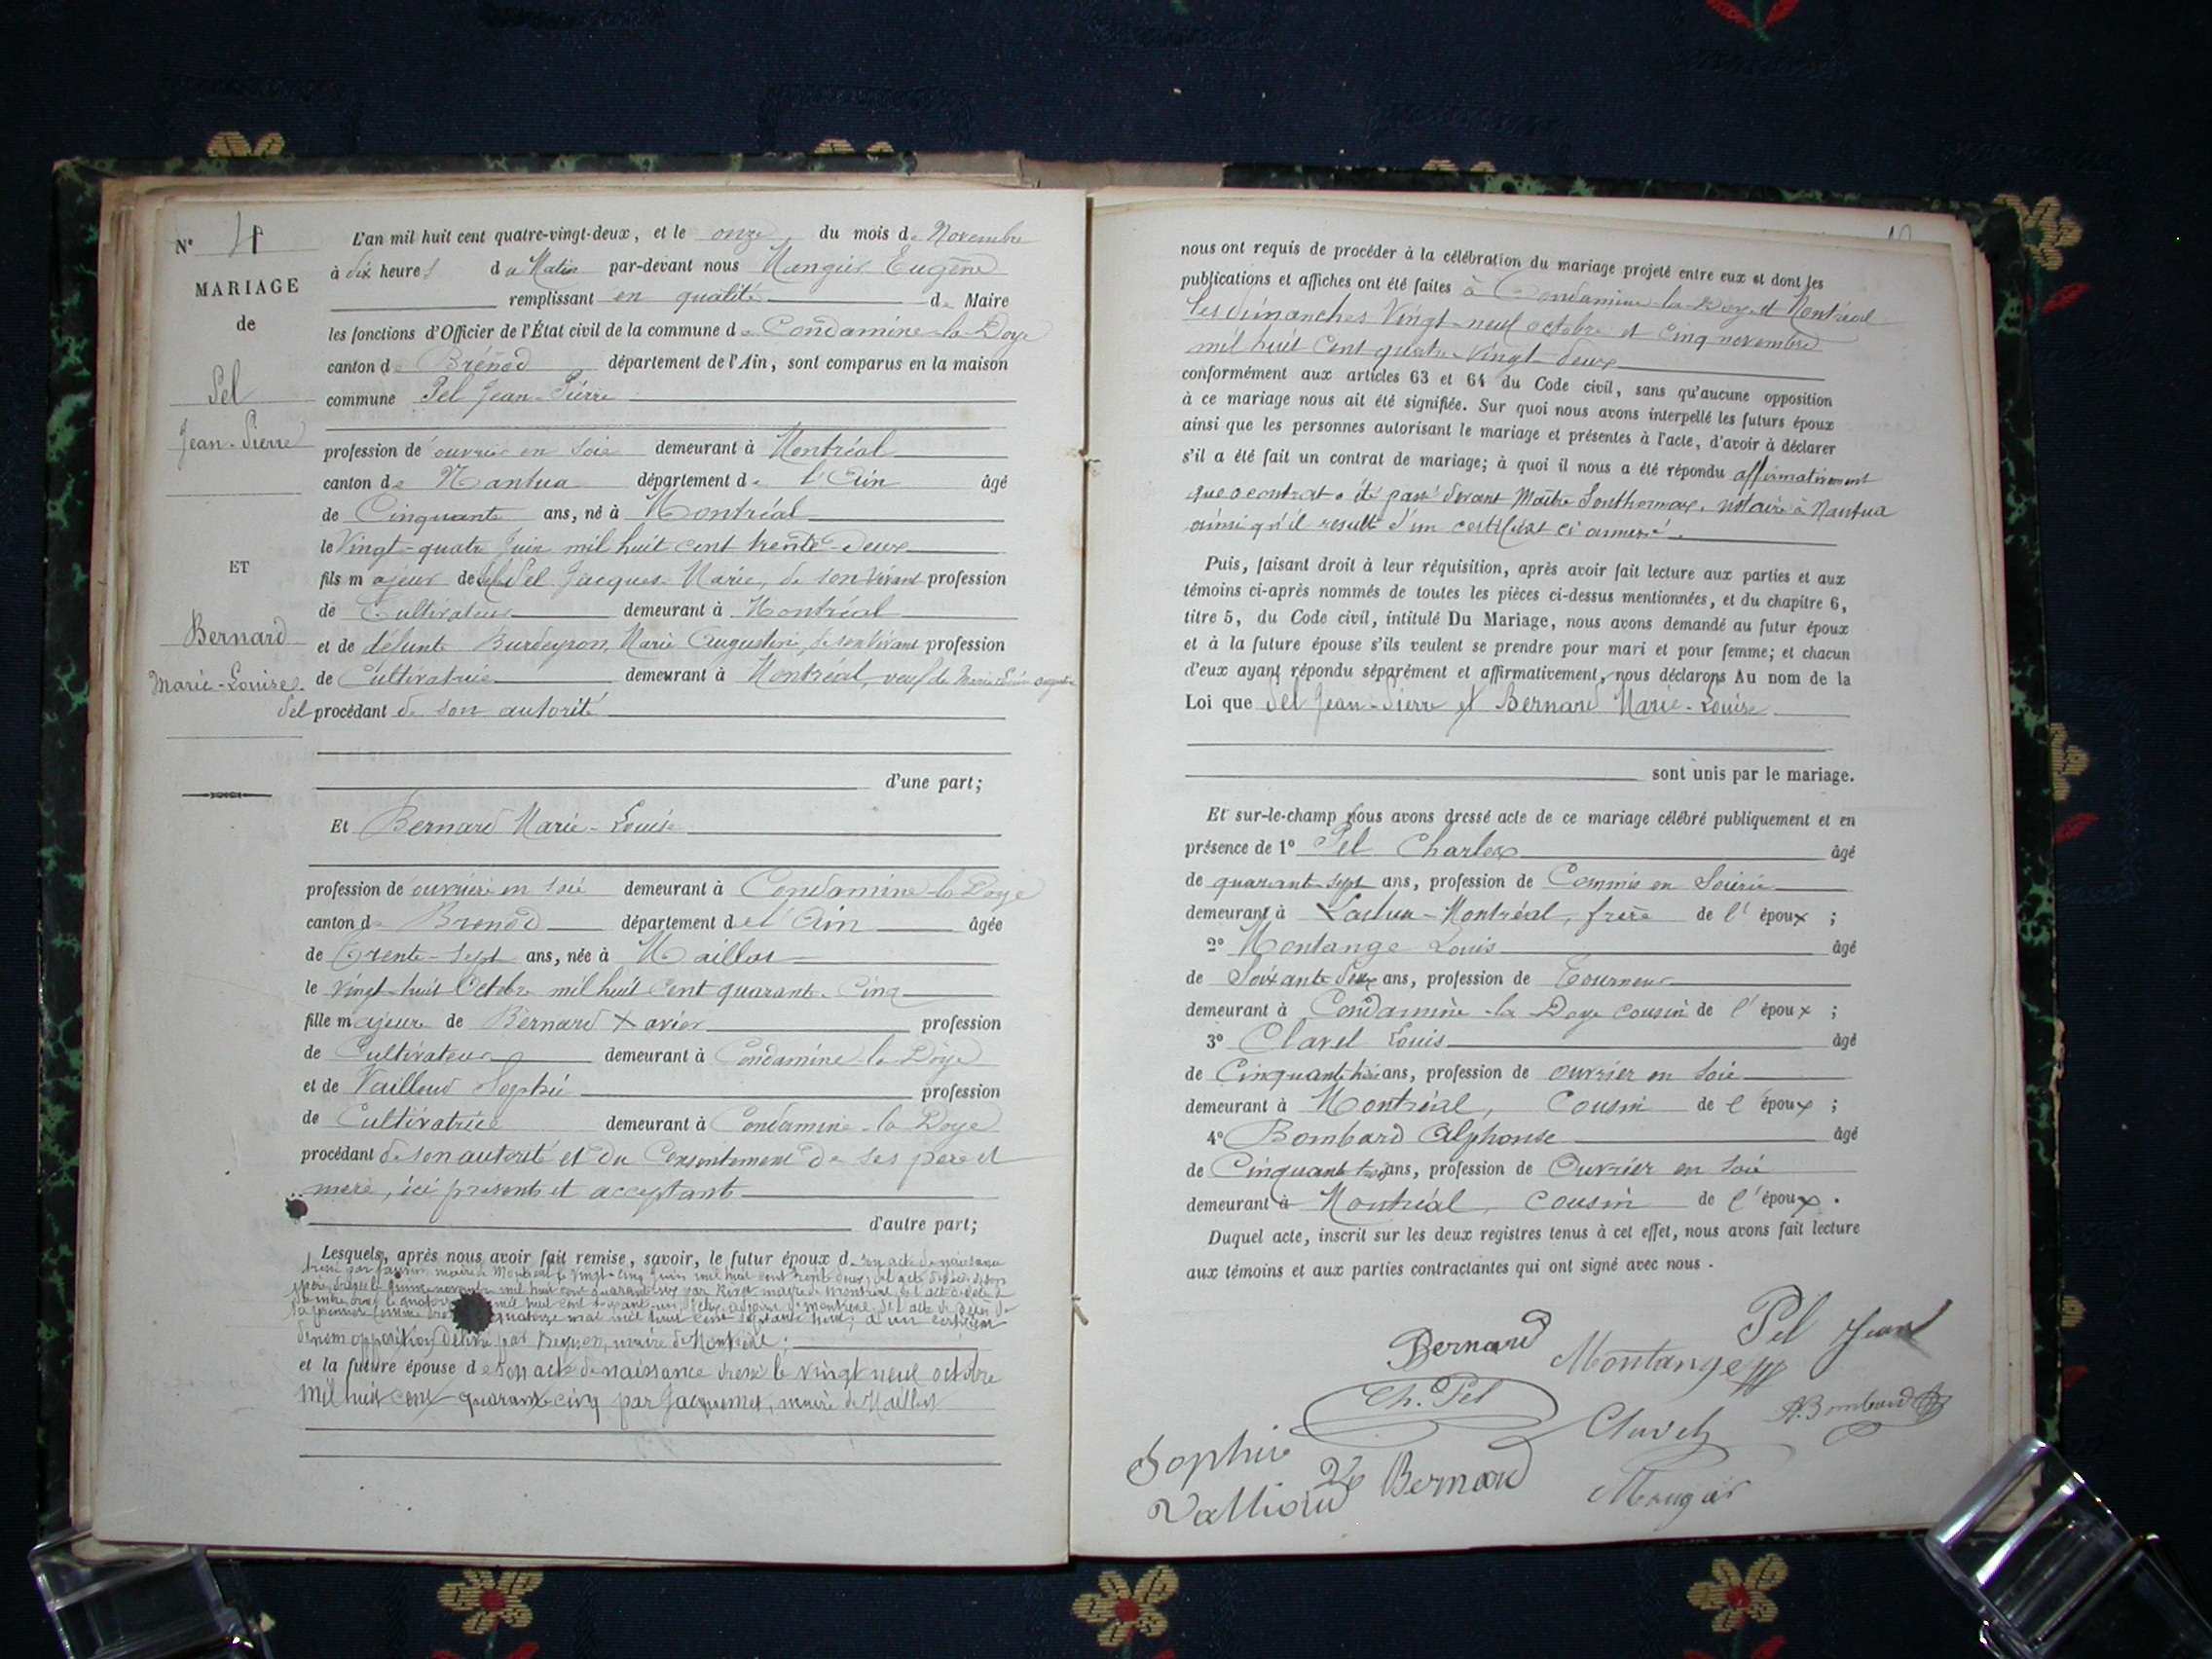 N° 4
MARIAGE
de
Pel
Jean-Pierre
ET
Bernard
Marie-Louise
L'an mil huit cent quatre-vingt-deux, et le onze du mois de Novembre
à dix heures du Matin par-devant nous Eugène
remplissant en qualité de Maire
les fonctions d'Officier de l'État civil de la commune de Condamine-la-Doye
canton de Brénod département de l'Ain, sont comparus en la maison
commune Pel Jean-Pierre
profession de ouvrier en soie demeurant à Montréal
canton de Nantua département de l'Ain âgé
de Cinquante ans, né à Montréal
le Vingt-quatre Juin mil huit cent trente-deux
fils majeur de Pel Jacques Marie, de son vivant profession
de Cultivateur demeurant à Montréal
et de défunte Burdeyron, Marie Augustine, de son vivant profession
de Cultivatrice demeurant à Montréal, veuf de Marie
Pel procédant de son autorité
d'une part;
Et Bernard Marie-Louise
profession de ouvrière en soie demeurant à Condamine-la-Doye
canton de Brénod département de l'Ain âgée
de Trente-sept ans, née à Maillat
le vingt-huit Octobre mil huit cent quarante-cinq
fille majeure de Bernard Xavier profession
de Cultivateur demeurant à Condamine-la-Doye
et de Vailloud Sophie profession
de Cultivatrice demeurant à Condamine-la-Doye
procédant de son autorité et du Consentement de ses père et
mère, ici présents et acceptants
d'autre part;
Lesquels, après nous avoir fait remise, savoir, le futur époux de son acte de naissance
maire de Montréal le vingt-cinq Juin mil huit cent trente deux
mil huit cent quarante six par maire de Montréal
quatorze mai mil huit cent soixante
de non opposition délivré par maire de Montréal;
et la future épouse de son acte de naissance dressé le vingt neuf octobre
mil huit cent quarante-cinq par Jacquemet, maire de Maillat
nous ont requis de procéder à la célébration du mariage projeté entre eux et dont les
publications et affiches ont été faites à Condamine-la-Doye et Montréal
les dimanches Vingt-neuf octobre et cinq novembre
mil huit cent quatre-vingt-deux
conformément aux articles 63 et 64 du Code civil, sans qu'aucune opposition
à ce mariage nous ait été signifiée. Sur quoi nous avons interpellé les futurs époux
ainsi que les personnes autorisant le mariage et présentes à l'acte, d'avoir à déclarer
s'il a été fait un contrat de mariage; à quoi il nous a été répondu affirmativement
que ce contrat a été passé devant Maître Sonthonnax, notaire à Nantua
ainsi qu'il resulte d'un certificat ci annexé.
Puis, faisant droit à leur réquisition, après avoir fait lecture aux parties et aux
témoins ci-après nommés de toutes les pièces ci-dessus mentionnées, et du chapitre 6,
titre 5, du Code civil, intitulé Du Mariage, nous avons demandé au futur époux
et à la future épouse s'ils veulent se prendre pour mari et pour femme; et chacun
d'eux ayant répondu séparément et affirmativement, nous déclarons Au nom de la
Loi que Pel Jean-Pierre et Bernard Marie-Louise
sont unis par le mariage.
Et sur-le-champ nous avons dressé acte de ce mariage célébré publiquement et en
présence de 1° Pel Charles âgé
de quarante-sept ans, profession de Commis en Soierie
demeurant à Montréal, frère de l'époux;
2° Montange Louis âgé
de Soixante deux ans, profession de Tourneur
demeurant à Condamine-la-Doye cousin de l'époux;
3° Clavel Louis âgé
de Cinquante ans, profession de ouvrier en soie
demeurant à Montréal, cousin de l'époux;
4° Bombard Alphonse âgé
de Cinquante trois ans, profession de Ouvrier en soie
demeurant à Montréal, cousin de l'époux.
Duquel acte, inscrit sur les deux registres tenus à cet effet, nous avons fait lecture
aux témoins et aux parties contractantes qui ont signé avec nous.
Bernard Montange Pel Jean
Ch. Pel Clavel A. Bombard
Sophie
Bernard